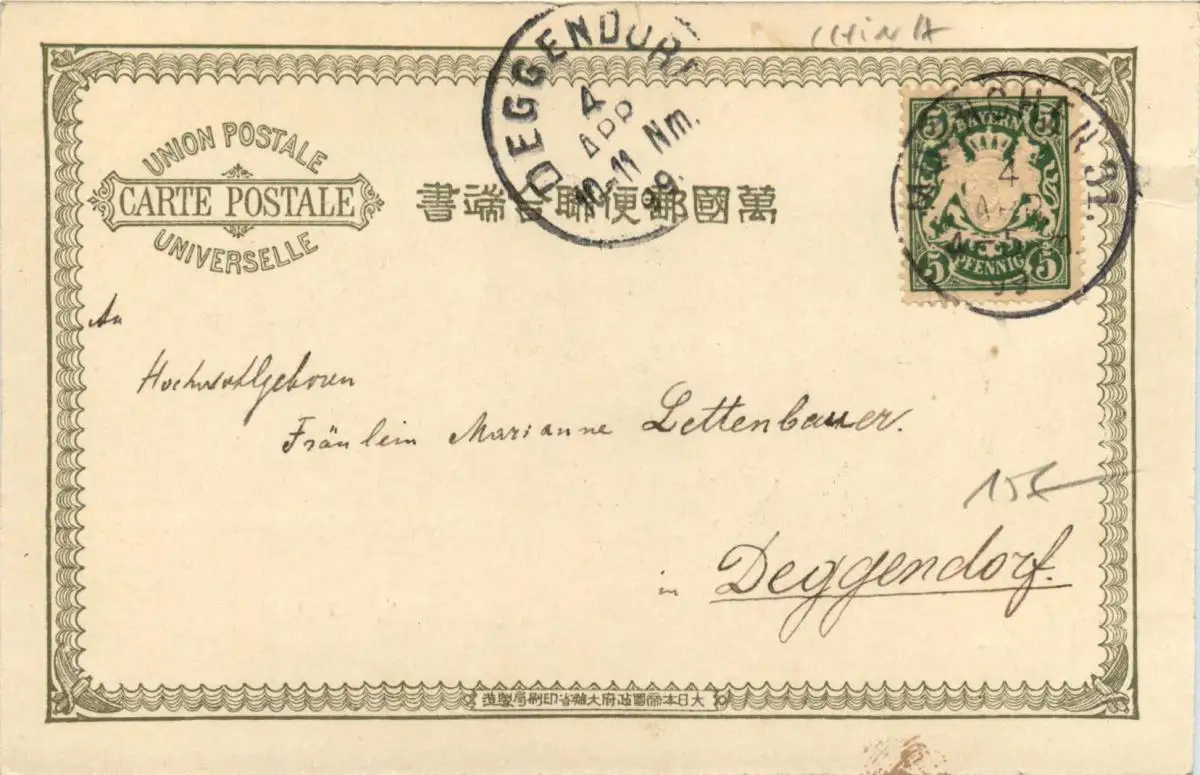 CHINA
UNION POSTALE
CARTE POSTALE
UNIVERSELLE
書端合聯便郵國萬
DEGGENDORF
4
APR
10-11 Nm.
99.
BAYERN
5 5
5 PFENNIG 5
MÜNCHEN 31.
4
99
An
Hochwohlgeboren
Fräulein Marianne Lettenbauer.
in Deggendorf.
造製局刷印省蔵大府政國帝本日大